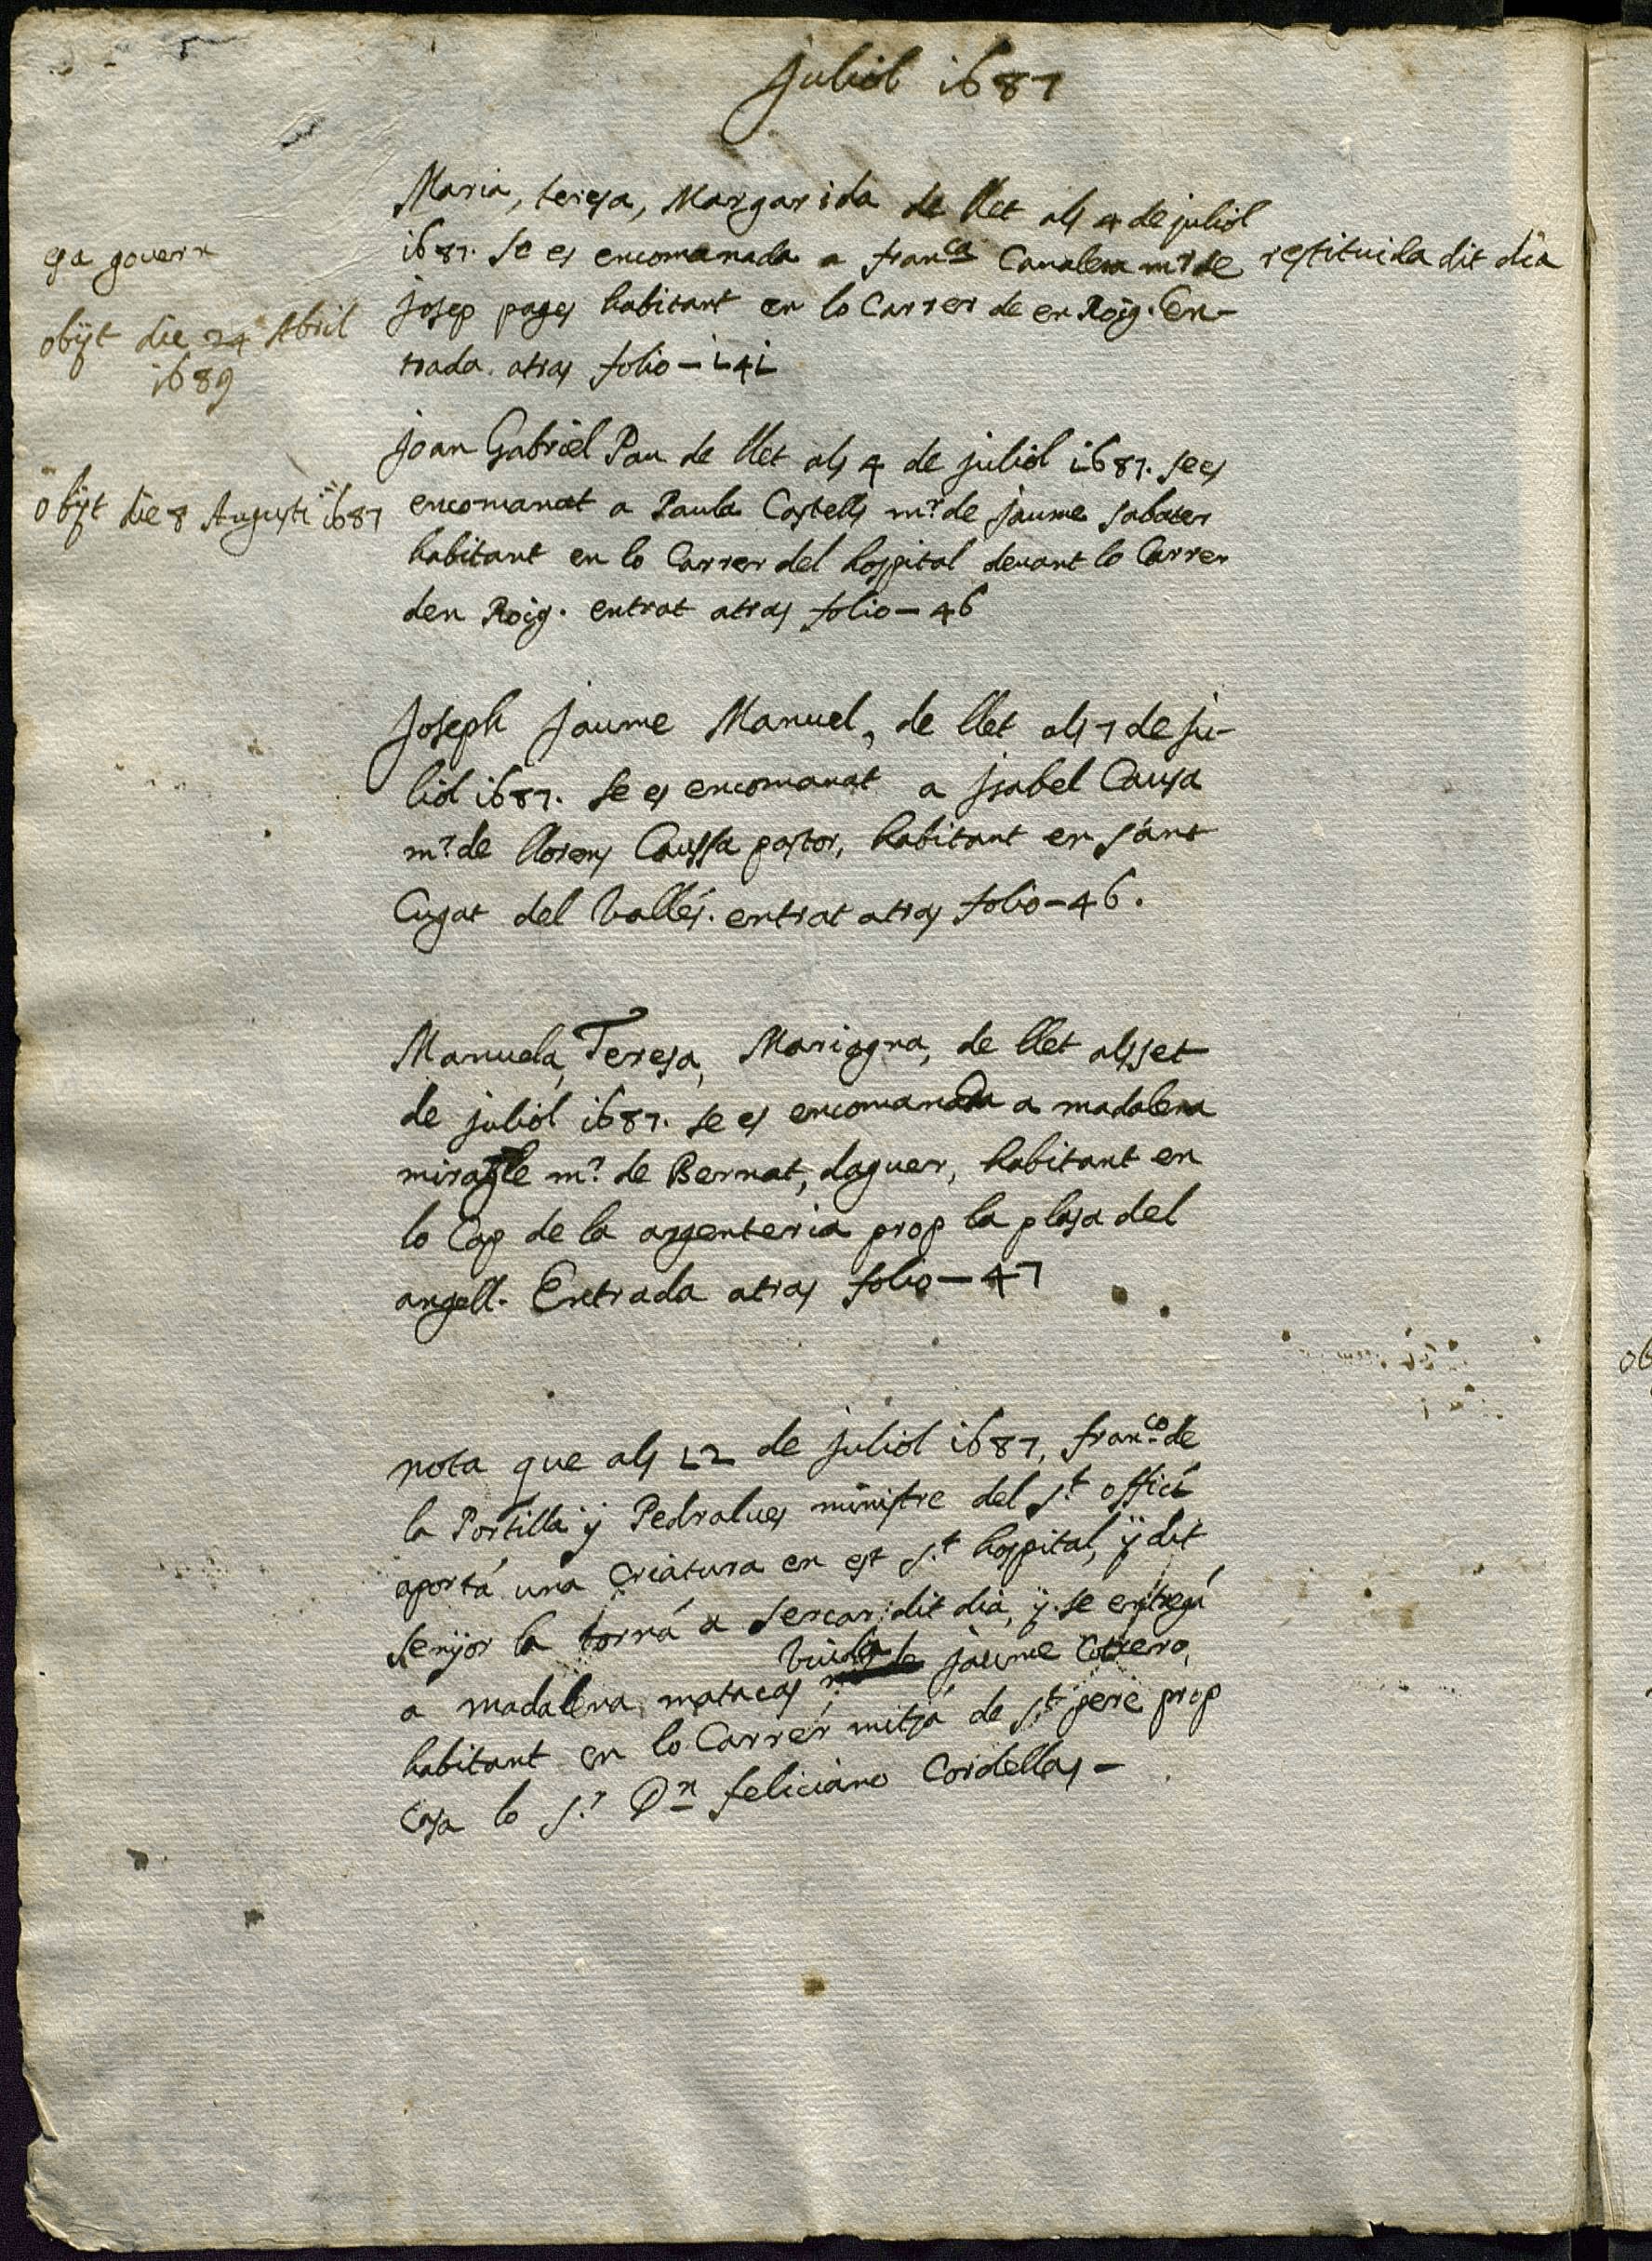 juliol 1687
Maria, teresa, Margarida de llet als 4 de juliol
1687. se es encomanada a fran.ca Canalera m.r de restituida dit dia
josep pages habitant en lo Carrer de en Roig. En-
trada. atras folio - 141
esa govern
obijt die 24 Abril
1689
joan Gabriel Pau de llet als 4 de juliol 1687. se es
encomanat a Paula Castells m.r de jaume sabater
habitant en lo Carrer del hospital devant lo Carrer
den Roig. entrat atras folio - 46
obijt die 8 Augusti 1687
Joseph jaume Manuel, de llet als 7 de ju-
liol 1687. se es encomanat a jsabel Causa
m.r de llorens Caussa pastor, habitant en sant
Cugat del Vallés. entrat atras folio - 46.
Manuela, Teresa, Mariagna, de llet als set
de juliol 1687. se es encomanada a madalena
miracle m.r de Bernat, daguer, habitant en
lo Cap de la argenteria prop la plasa del
angell. Entrada atras folio - 47
nota que als 12 de juliol 1687, fran.co de
la Portilla ÿ Pedralues ministre del s.t offici
aportá una criatura en est s.t hospital, ÿ dit
senÿor la torná a sercar dit dia, ÿ se entregá
viuda
a madalena matacas jaume Cotrero,
habitant en lo Carrer mitjá de s.t pere prop
casa lo s.r Dn feliciano Cordellas -